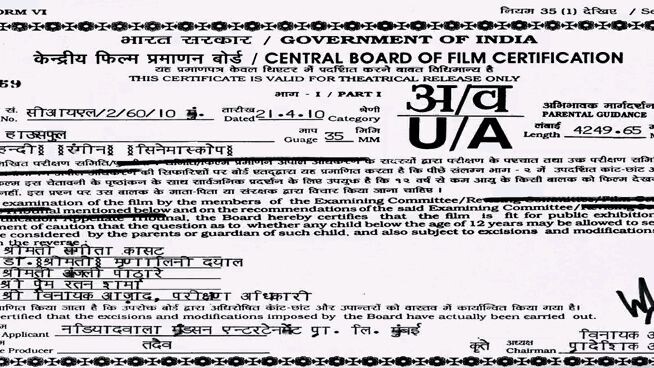 ORM VI नियम 35 (1) देखिए / Se
भारत सरकार / GOVERNMENT OF INDIA
केन्द्रीय फिल्म प्रमाणन बोर्ड / CENTRAL BOARD OF FILM CERTIFICATION
यह प्रमाणपत्र केवल थिएटर में प्रदर्शित करने बाबत विधिमान्य है
59 THIS CERTIFICATE IS VALID FOR THEATRICAL RELEASE ONLY
भाग - I / PART I
सं. सीआयएल/2/60/10 मुं. तारीख 21.4.10 श्रेणी अ/व अभिभावक मार्गदर्शन
No. Dated Category U/A PARENTAL GUIDANCE
हाउसफुल माप 35 मिमि लंबाई 4249.65
Guage MM Length M
हिन्दी रंगीन सिनेमास्कोप
के सदस्यों द्वारा परीक्षण के पश्चात तथा उक्त परीक्षण
की सिफारिशों पर बोर्ड एतद्द्वारा यह प्रमाणित करता है कि
इस चेतावनी के पृष्ठांकन के साथ सार्वजनिक प्रदर्शन के लिए उपयुक्त है कि १२ वर्ष से कम आयु के किसी बालक को फिल्म
नहीं. इस प्रश्न पर उस बालक के माता-पिता या संरक्षक द्वारा विचार किया जाना चाहिए ।
examination of the film by the members of the Examining Committee/
mentioned below and on the recommendations of the said Examining Committee/
the Board hereby certifies that the film is fit for public exhibition
ment of caution that the question as to whether any child below the age of 12 years may be allowed to se
e considered by the parents or guardian of such child, and also subject to excisions and modifications
n the reverse
श्रीमती संगीता कासट
डा. श्रीमती मृणालिनी दयाल
श्रीमती अंजली पाठारे
श्री प्रेम रतन शर्मा
श्री विनायक आज़ाद, परीक्षण अधिकारी
किया जाता है कि उपरोक्त बोर्ड द्वारा अधिरोपित कांट-छांट और उपान्तरों को वास्तव में कार्यान्वित किया गया है।
ertified that the excisions and modifications imposed by the Board have actually been carried out.
Applicant नडियादवाला ग्रैंडसन एन्टरटेनमेंट प्रा. लि. मुंबई विनायक
e Producer तदैव कृते अध्यक्ष Chairman प्रादेशिक